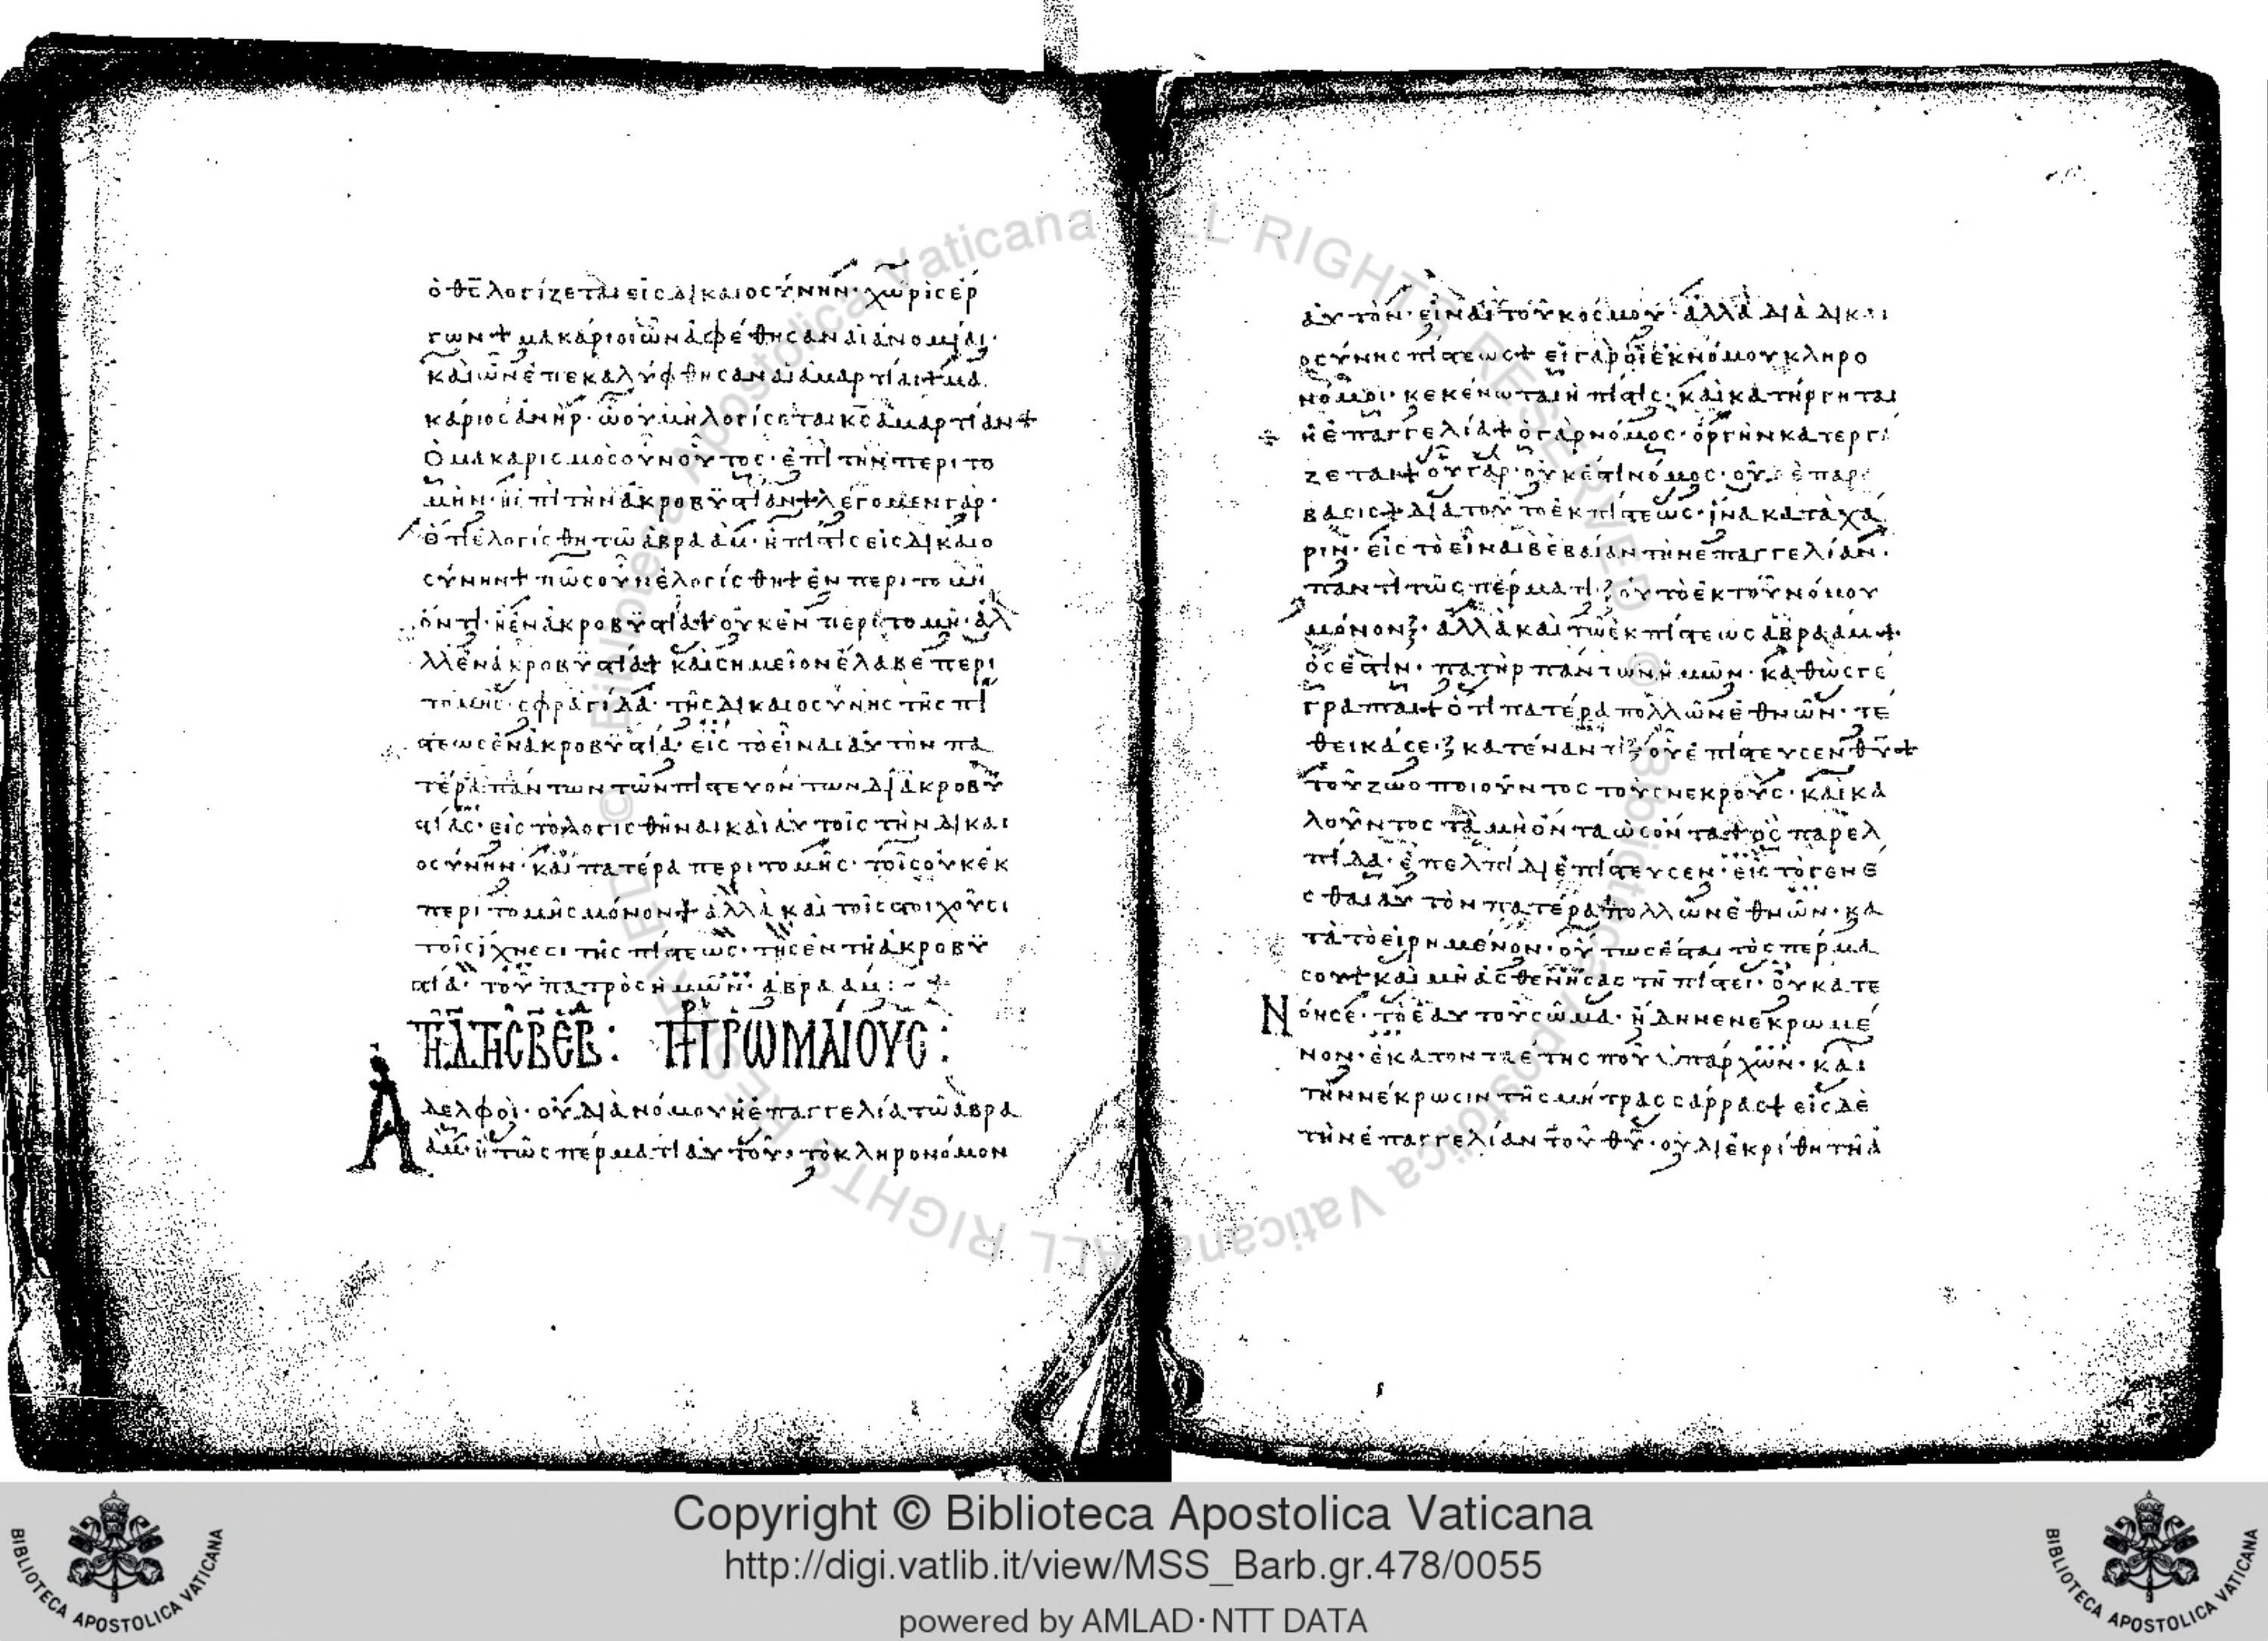 ὁ θς λογίζεται εἰς δικαιοσύνην· χωρὶς ἔρ
γων + μακάριοι ὧν ἀφέθησαν αἱ ἀνομίαι·
καὶ ὧν ἐπεκαλύφθησαν αἱ ἁμαρτίαι + μα
κάριος ἀνὴρ· ὧ οὐ μὴ λογίσεται κς ἁμαρτίαν +
Ὁ μακαρισμὸς οὖν οὗτος· ἐπὶ τὴν περιτο
μὴν· ἢ ἐπὶ τὴν ἀκροβϋστίαν + λέγομεν γὰρ·
ὅτι ἐλογίσθη τῶ ἀβραάμ· ἡ πίστις εἰς δικαιο
σύνην + πῶς οὖν ἐλογίσθη + ἐν περιτομῆ
ὄντι· ἢ ἐν ἀκροβϋστία + οὐκ ἐν περιτομῆ· ἀλ
λ ἐν ἀκροβϋστία + καὶ σημεῖον ἔλαβε περι
τομῆς· σφραγίδα· τῆς δικαιοσύνης τῆς πί
στεως ἐν ἀκροβϋστία· εἰς τὸ εἶναι αὐτὸν πα
τέρα πάντων τῶν πιστευόντων δι ἀκροβϋ
στίας· εἰς τὸ λογισθῆναι καὶ αὐτοῖς τὴν δικαι
οσύνην· καὶ πατέρα περιτομῆς· τοῖς οὐκ ἐκ
περιτομῆς μόνον + ἀλλὰ καὶ τοῖς στοιχοῦσι
τοῖς ἴχνεσι τῆς πίστεως· τῆς ἐν τῆ ἀκροβϋ
στία· τοῦ πατρὸς ἡμῶν· ἀβραάμ :~ +
ΡΩΜΑΙΟΥС :
Ἀδελφοὶ· οὐ διὰ νόμου ἡ ἐπαγγελία τῶ ἀβρα
ὰμ· ἢ τῶ σπέρματι αὐτοῦ· τὸ κληρονόμον
αὐτὸν· εἶναι τοῦ κόσμου· ἀλλὰ διὰ δικαι
οσύνης πίστεως + εἰ γὰρ οἱ ἐκ νόμου κληρο
νόμοι· κεκένωται ἡ πίστις· καὶ κατήργηται
ἡ ἐπαγγελία + ὁ γὰρ νόμος· ὀργὴν κατεργά
ζεται + οὗ γὰρ· οὐκ ἔστι νόμος· οὐδὲ παρά
βασις + διὰ τοῦτο ἐκ πίστεως· ἵνα κατὰ χά
ριν· εἰς τὸ εἶναι βεβαίαν τὴν ἐπαγγελίαν·
παντὶ τῶ σπέρματι· οὐ τὸ ἐκ τοῦ νόμου
μόνον· ἀλλὰ καὶ τῶ ἐκ πίστεως ἀβραάμ +
ὅς ἐστιν· πατὴρ πάντων ἡμῶν· καθὼς γέ
γραπται + ὅτι πατέρα πολλῶν ἐθνῶν· τέ
θεικά σε· κατέναντι οὗ ἐπίστευσεν θυ +
τοῦ ζωοποιοῦντος τοὺς νεκροὺς· καὶ κα
λοῦντος τὰ μὴ ὄντα ὡς ὄντα + ὃς παρ ἐλ
πίδα· ἐπ ἐλπίδι ἐπίστευσεν· εἰς τὸ γενέ
σθαι αὐτὸν πατέρα πολλῶν ἐθνῶν· κα
τὰ τὸ εἰρημένον· οὕτως ἔσται τὸ σπέρμα
σου + καὶ μὴ ἀσθενήσας τῆ πίστει· οὐ κατε
νόησε· τὸ ἑαυτοῦ σῶμα· ἤδη νενεκρωμέ
νον· ἑκατονταέτης που ὑπάρχων· καὶ
τὴν νέκρωσιν τῆς μήτρας σάρρας + εἰς δὲ
τὴν ἐπαγγελίαν τοῦ θυ· οὐ διεκρίθη τῆ ἀ
Copyright © Biblioteca Apostolica Vaticana
http://digi.vatlib.it/view/MSS_Barb.gr.478/0055
powered by AMLAD·NTT DATA
BIBLIOTECA APOSTOLICA VATICANA
BIBLIOTECA APOSTOLICA VATICANA